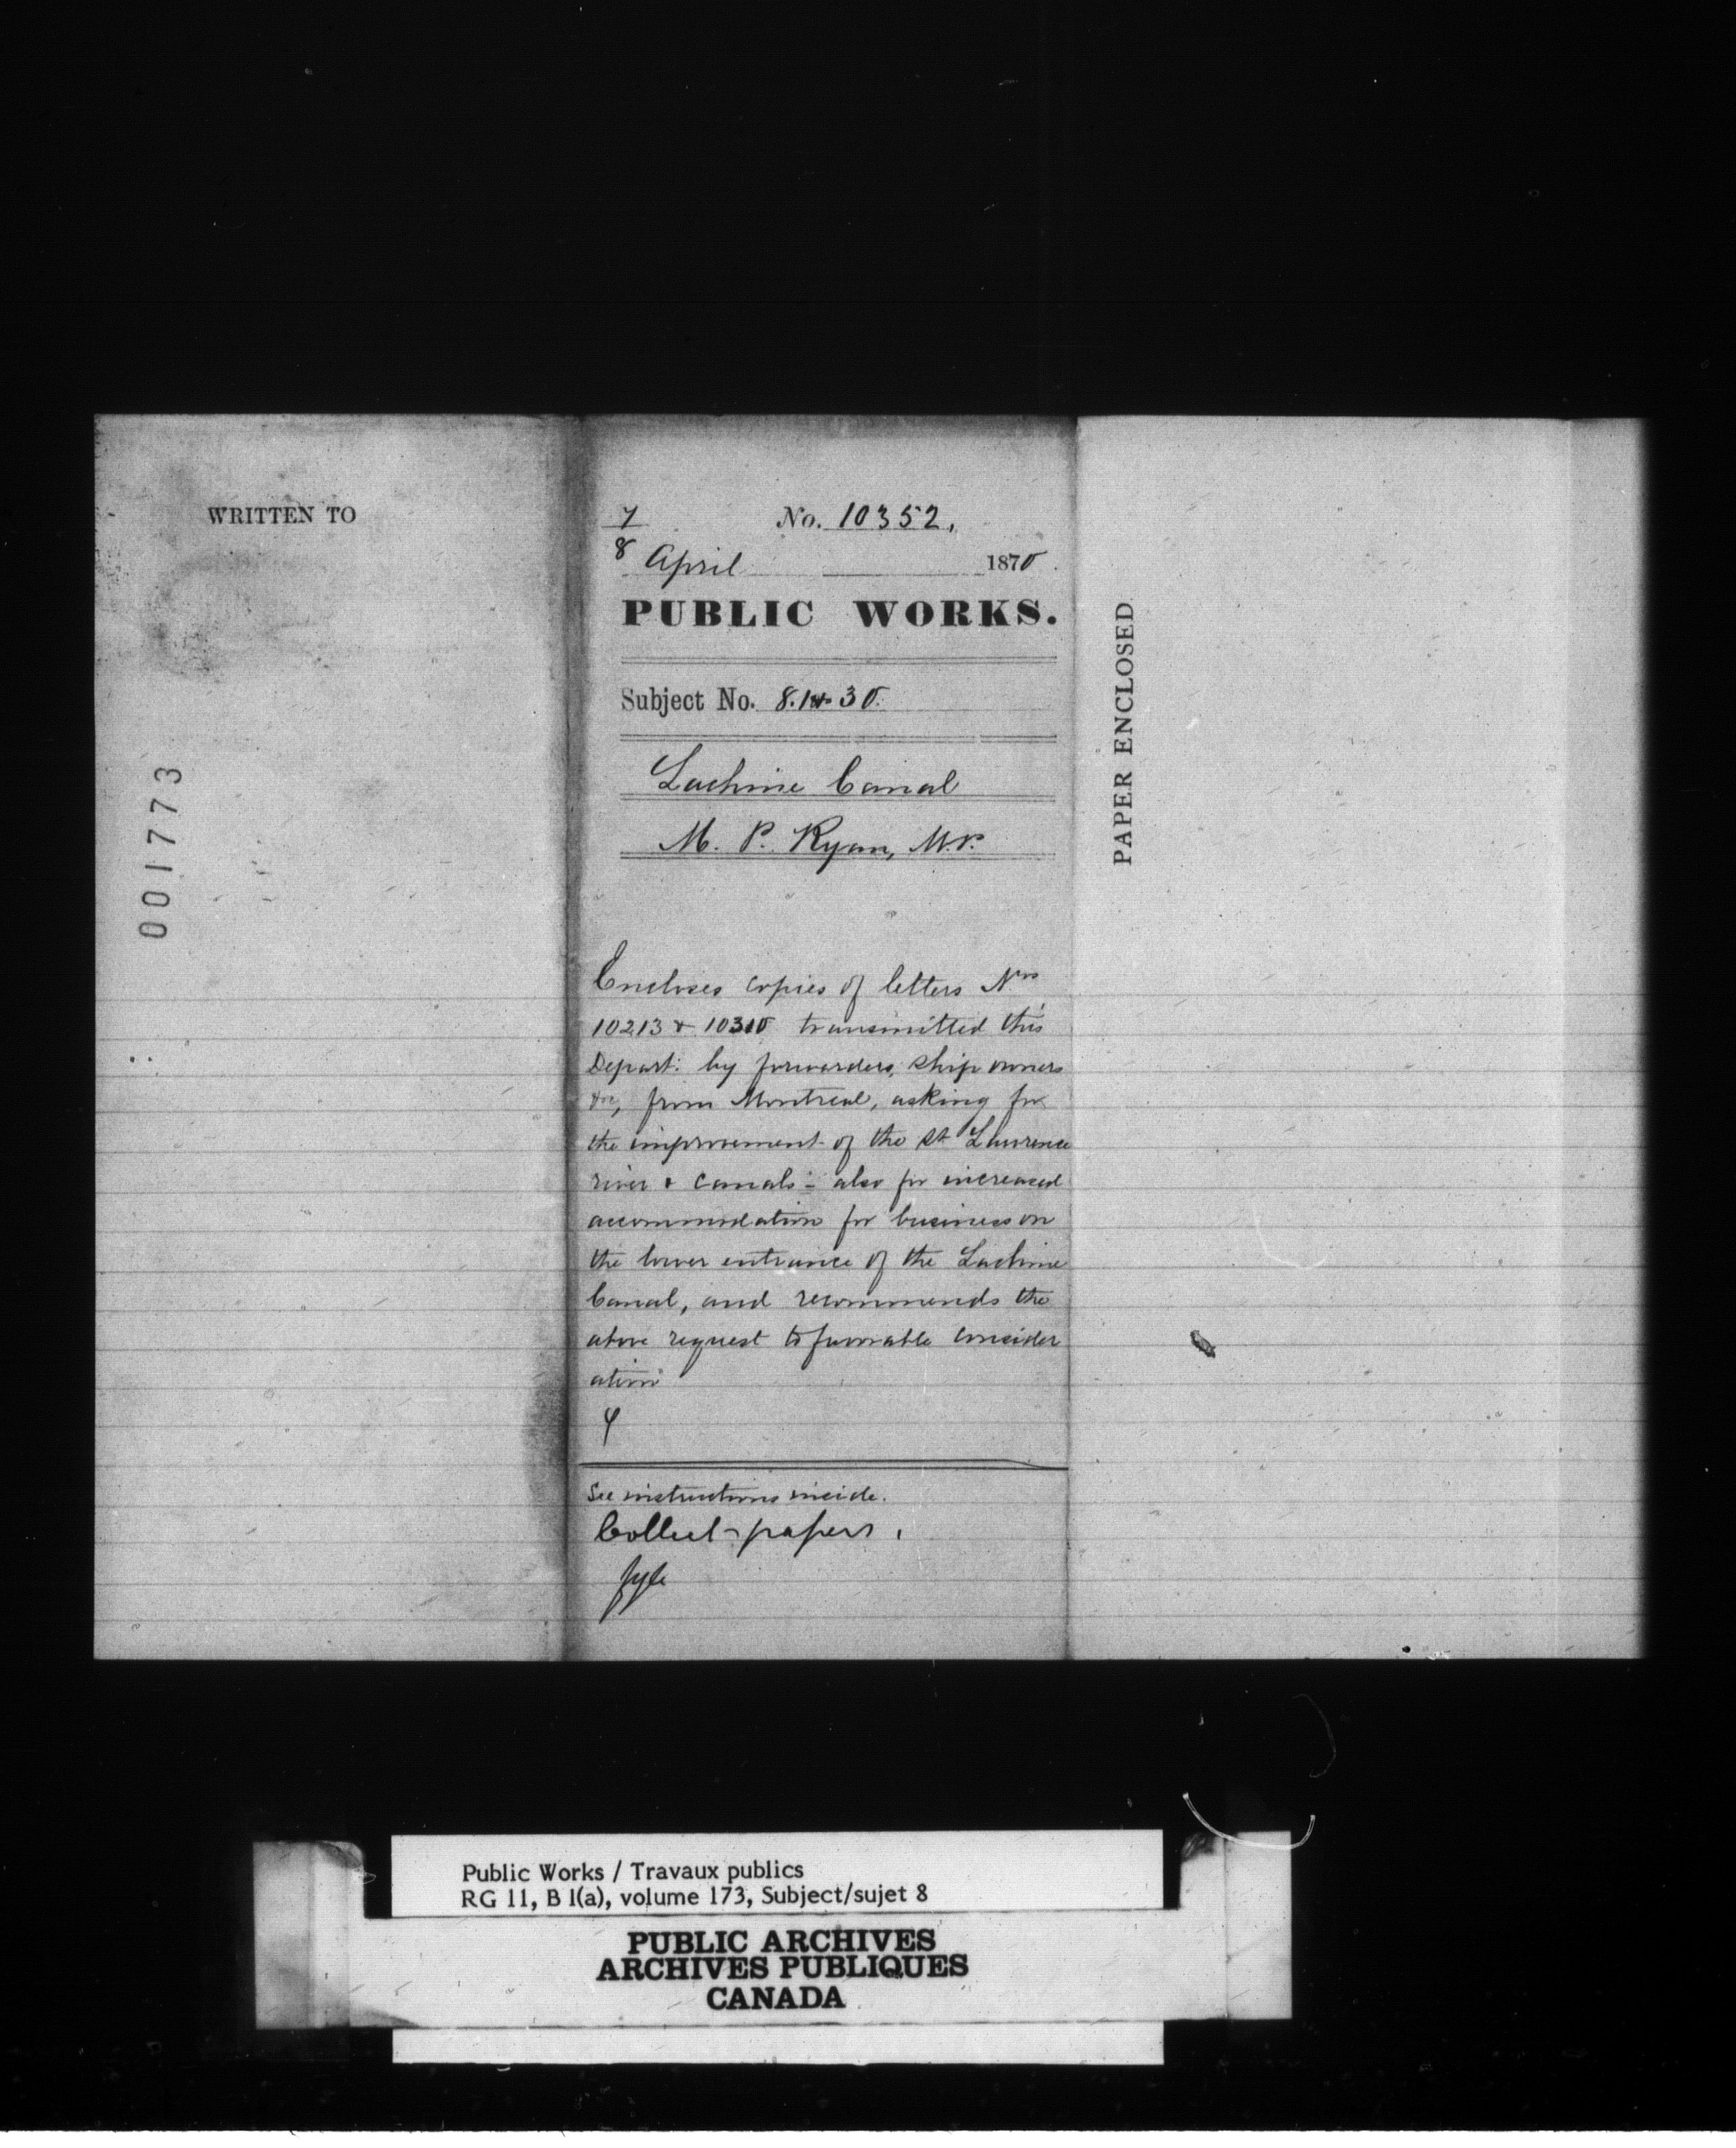 WRITTEN TO
001773
7
8 April 1870.
No. 10352.
PUBLIC WORKS.
Subject No. 8. 30.
Lachine Canal
M. P. Ryan, M.P.
Encloses copies of letters Nos
10213 & 10310 transmitted this
Depart: by forwarders, ship owners
&c, from Montreal, asking for
the improvement of the St Lawrence
river & canals - also for increased
accommodation for business on
the lower entrance of the Lachine
Canal, and recommends the
above request to favorable consider
ation
See instructions inside.
Collect papers.
fyle
PAPER ENCLOSED
Public Works / Travaux publics
RG 11, B 1(a), volume 173, Subject/sujet 8
PUBLIC ARCHIVES
ARCHIVES PUBLIQUES
CANADA